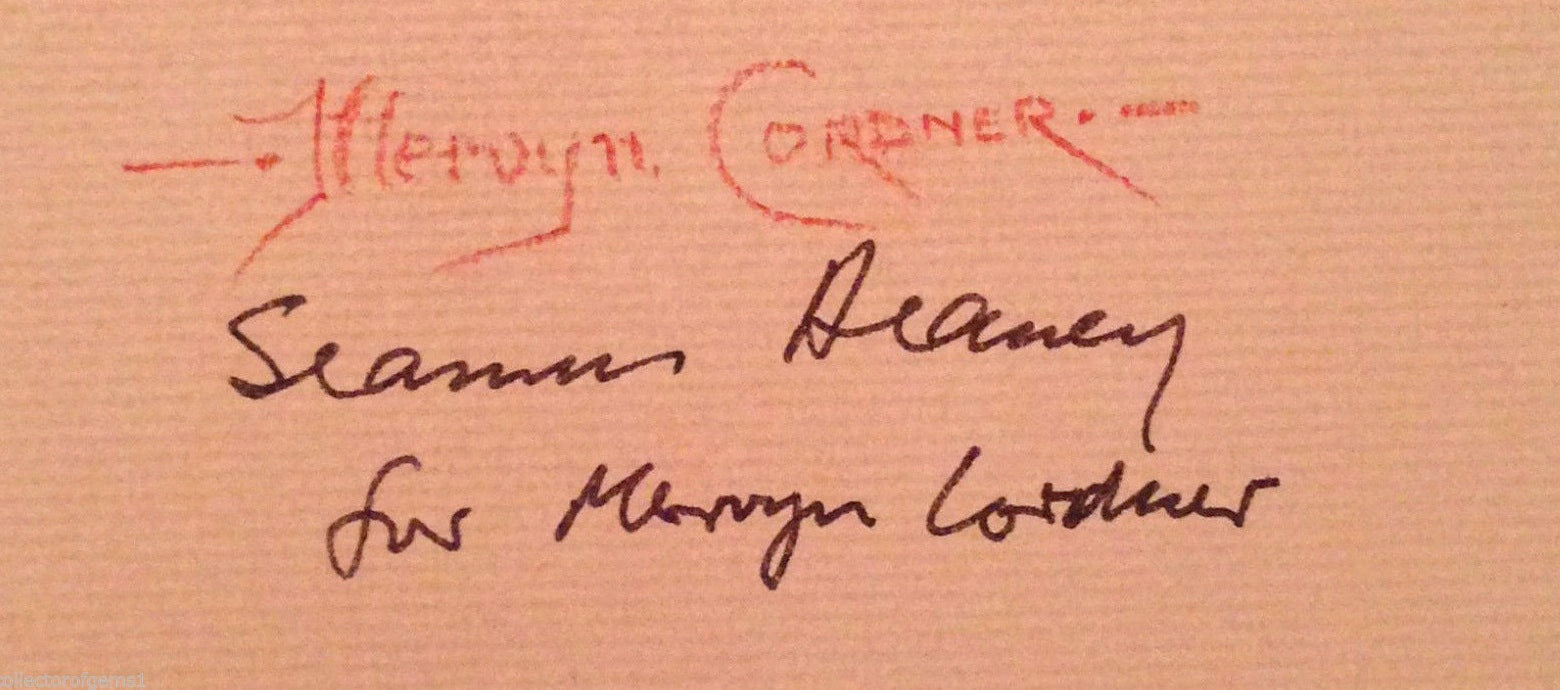 —. Mervyn. CORDNER. —
Seamus Heaney
for Mervyn Cordner
ollectorofgems1